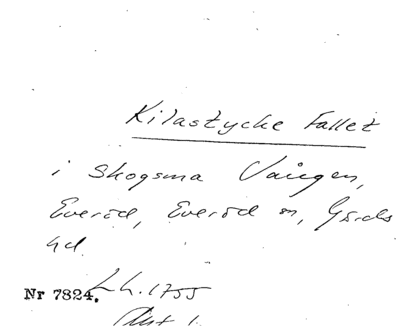 Kilastycke Fallet
i Skogsma Vången,
Everöd, Everöd sn, Gärds
hd.
Nr 7824. L h. 1755
Akt 1.